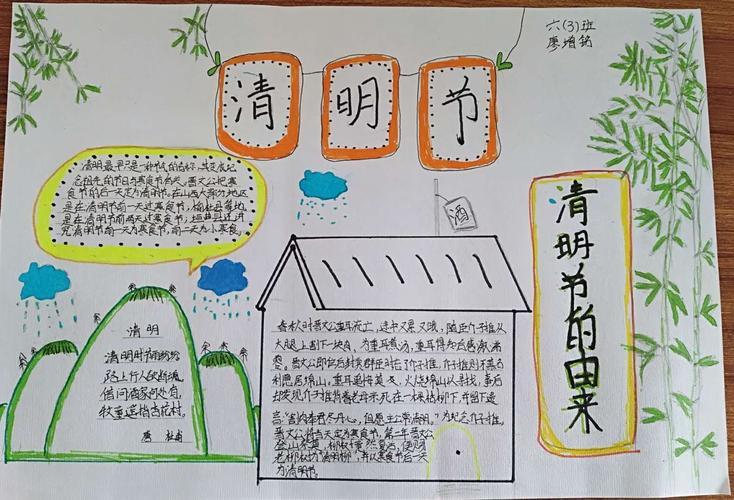 六(3)班
廖增铭
清明节
清明最早只是一种节气的名称,其变成纪
念祖先的节日与寒食节有关。晋文公把寒
食节的后一天定为清明节。在山西大部分地区
是在清明节前一天过寒食节,榆社县等地
是在清明节前两天过寒食节,垣曲县还讲
究清明节前一天为寒食节,前二天为小寒食。
酒
清明节的由来
清明
清明时节雨纷纷
路上行人欲断魂。
借问酒家何处有,
牧童遥指杏花村。
唐 杜甫
春秋时晋文公重耳流亡,途中又累又饿,随臣介子推从
大腿上割下一块肉,为重耳煮汤,重耳得知后感激
晋文公即位后封赏群臣时忘了介子推,介子推则不慕名
利隐居绵山,重耳追悔莫及,火烧绵山以寻找,事后
却发现介子推背着老母死在一棵枯柳下,并留下遗
言:“割肉奉君尽丹心,但愿主公常清明。”为纪念介子推,
晋文公将当天定为寒食节,第二年晋文公
登山祭奠,
老柳树为“清明柳”,并以寒食节后一天
为清明节。